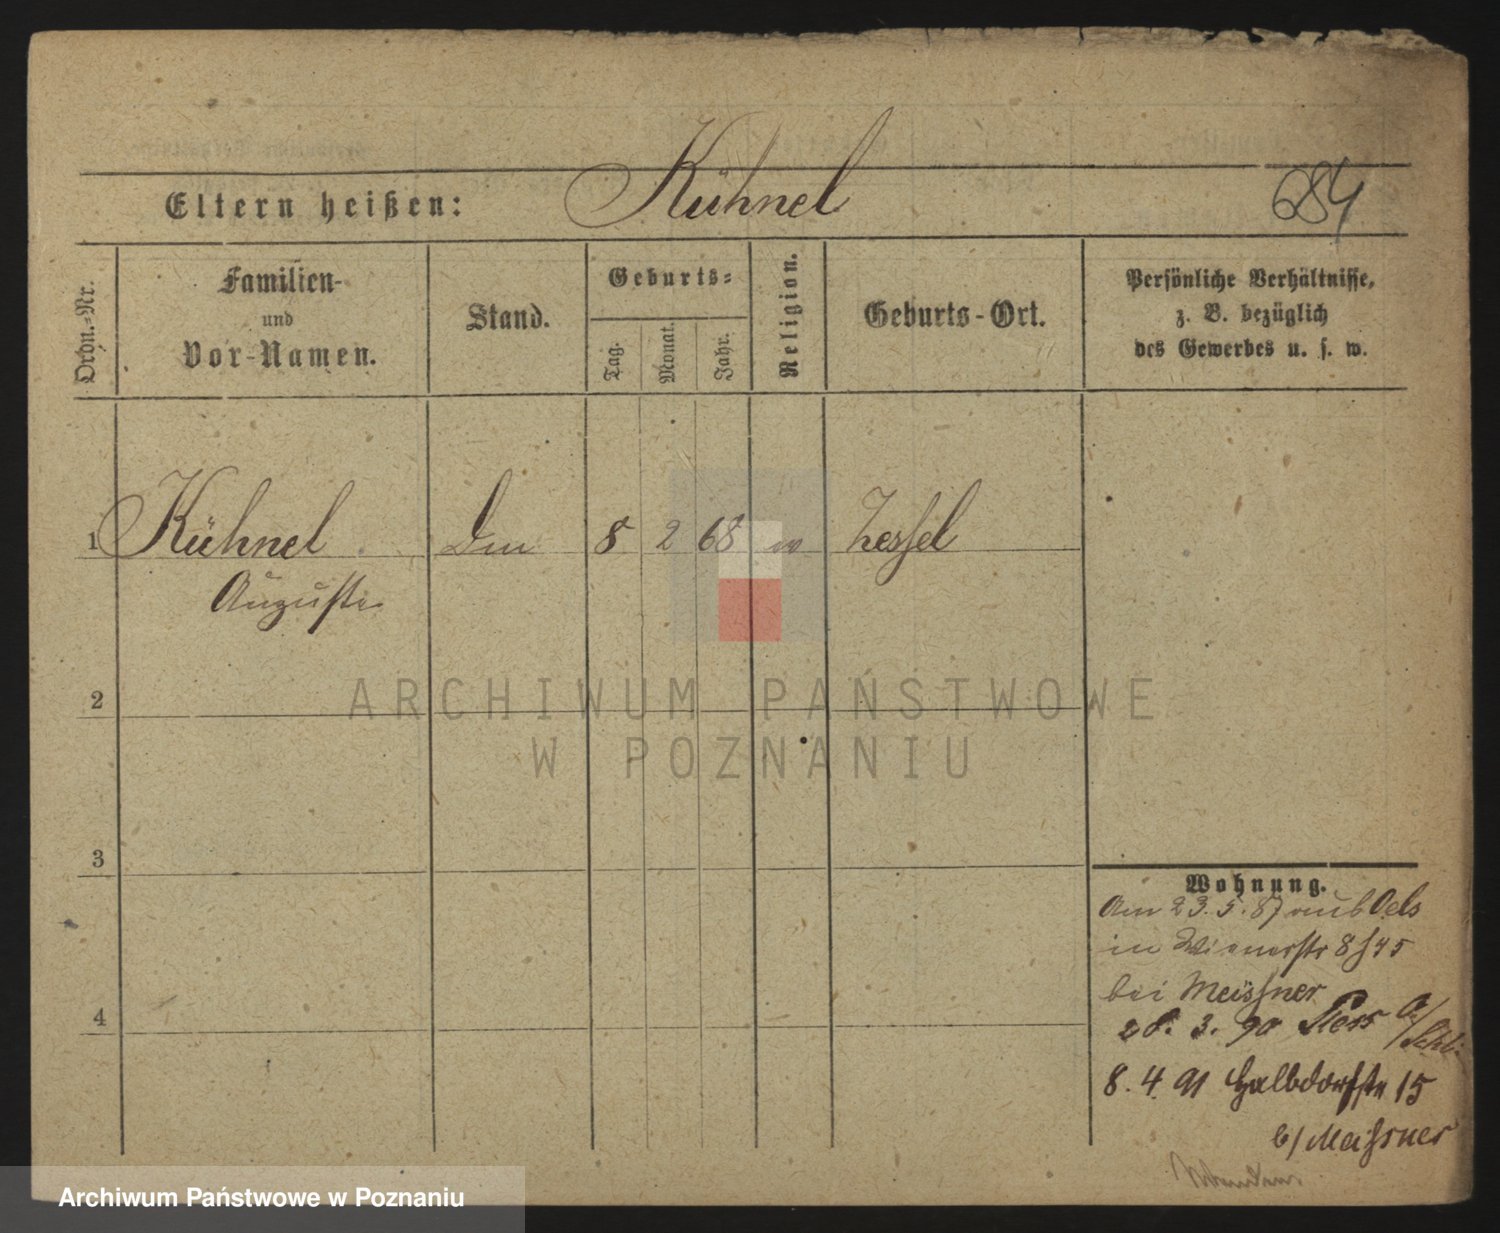 Eltern heißen: Kühnel 684
Ordn.-Nr.
Familien-
und
Vor-Namen.
Stand.
Geburts-
Tag.
Monat.
Jahr.
Religion.
Geburts-Ort.
Persönliche Verhältnisse,
z. B. bezüglich
des Gewerbes u. s. w.
1 Kühnel 8 2 68 Zessel
Auguste
2
3
4
ARCHIWUM PAŃSTWOWE
W POZNANIU
Wohnung.
Am 23. 5. 87 aus Oels
in Wienerstr 8
bei Meissner
28. 3. 90
8. 4. 91 Halbdorfstr 15
b/ Meissner
Archiwum Państwowe w Poznaniu